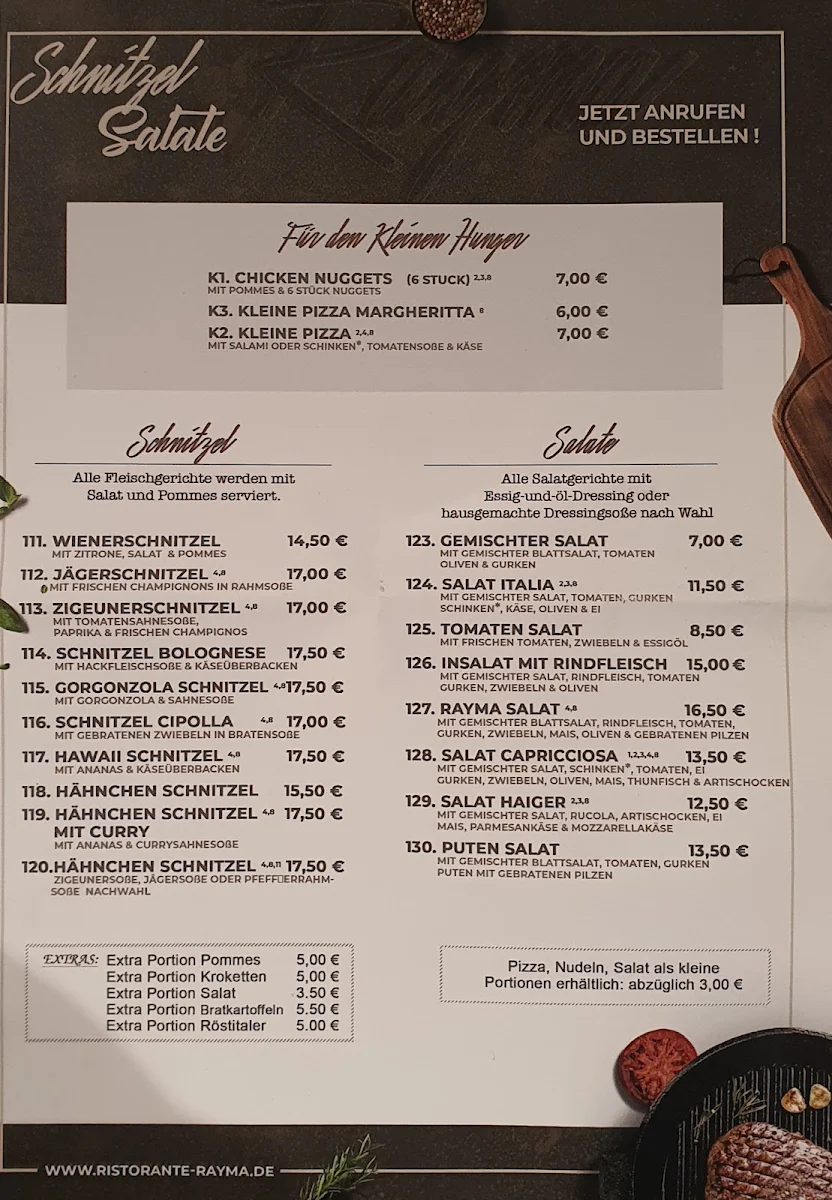 Schnitzel
Salate
JETZT ANRUFEN
UND BESTELLEN !
Für den Kleinen Hunger
K1. CHICKEN NUGGETS (6 STUCK) 2,3,8 7,00 €
MIT POMMES & 6 STÜCK NUGGETS
K3. KLEINE PIZZA MARGHERITTA 8 6,00 €
K2. KLEINE PIZZA 2,4,8 7,00 €
MIT SALAMI ODER SCHINKEN*, TOMATENSOßE & KÄSE
Schnitzel
Alle Fleischgerichte werden mit
Salat und Pommes serviert.
111. WIENERSCHNITZEL 14,50 €
MIT ZITRONE, SALAT & POMMES
112. JÄGERSCHNITZEL 4,8 17,00 €
MIT FRISCHEN CHAMPIGNONS IN RAHMSOßE
113. ZIGEUNERSCHNITZEL 4,8 17,00 €
MIT TOMATENSAHNESOßE,
PAPRIKA & FRISCHEN CHAMPIGNOS
114. SCHNITZEL BOLOGNESE 17,50 €
MIT HACKFLEISCHSOßE & KÄSEÜBERBACKEN
115. GORGONZOLA SCHNITZEL 4,8 17,50 €
MIT GORGONZOLA & SAHNESOßE
116. SCHNITZEL CIPOLLA 4,8 17,00 €
MIT GEBRATENEN ZWIEBELN IN BRATENSOßE
117. HAWAII SCHNITZEL 4,8 17,50 €
MIT ANANAS & KÄSEÜBERBACKEN
118. HÄHNCHEN SCHNITZEL 15,50 €
119. HÄHNCHEN SCHNITZEL 4,8 17,50 €
MIT CURRY
MIT ANANAS & CURRYSAHNESOßE
120.HÄHNCHEN SCHNITZEL 4,8,11 17,50 €
ZIGEUNERSOßE, JÄGERSOßE ODER PFEFF▯ERRAHM-
SOßE NACHWAHL
Salate
Alle Salatgerichte mit
Essig-und-öl-Dressing oder
hausgemachte Dressingsoße nach Wahl
123. GEMISCHTER SALAT 7,00 €
MIT GEMISCHTER BLATTSALAT, TOMATEN
OLIVEN & GURKEN
124. SALAT ITALIA 2,3,8 11,50 €
MIT GEMISCHTER SALAT, TOMATEN, GURKEN
SCHINKEN*, KÄSE, OLIVEN & EI
125. TOMATEN SALAT 8,50 €
MIT FRISCHEN TOMATEN, ZWIEBELN & ESSIGÖL
126. INSALAT MIT RINDFLEISCH 15,00 €
MIT GEMISCHTER SALAT, RINDFLEISCH, TOMATEN
GURKEN, ZWIEBELN & OLIVEN
127. RAYMA SALAT 4,8 16,50 €
MIT GEMISCHTER BLATTSALAT, RINDFLEISCH, TOMATEN,
GURKEN, ZWIEBELN, MAIS, OLIVEN & GEBRATENEN PILZEN
128. SALAT CAPRICCIOSA 1,2,3,4,8 13,50 €
MIT GEMISCHTER SALAT, SCHINKEN*, TOMATEN, EI
GURKEN, ZWIEBELN, OLIVEN, MAIS, THUNFISCH & ARTISCHOCKEN
129. SALAT HAIGER 2,3,8 12,50 €
MIT GEMISCHTER SALAT, RUCOLA, ARTISCHOCKEN, EI
MAIS, PARMESANKÄSE & MOZZARELLAKÄSE
130. PUTEN SALAT 13,50 €
MIT GEMISCHTER BLATTSALAT, TOMATEN, GURKEN
PUTEN MIT GEBRATENEN PILZEN
EXTRAS: Extra Portion Pommes 5,00 €
Extra Portion Kroketten 5,00 €
Extra Portion Salat 3.50 €
Extra Portion Bratkartoffeln 5.50 €
Extra Portion Röstitaler 5.00 €
Pizza, Nudeln, Salat als kleine
Portionen erhältlich: abzüglich 3,00 €
WWW.RISTORANTE-RAYMA.DE